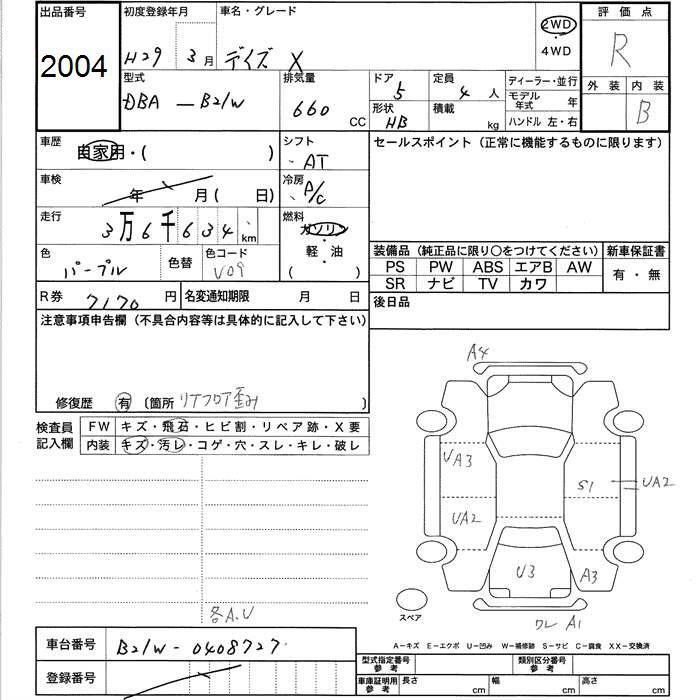 出品番号 初度登録年月 車名・グレード 2WD 評価点
2004 H29 3月 デイズ X 4WD R
型式 排気量 ドア 定員 ディーラー・並行 外装 内装
DBA-B21W 660 CC 5 4人 モデル年式 年 B
形状 HB 積載 kg ハンドル 左・右
車歴 自家用・( ) シフト AT セールスポイント (正常に機能するものに限ります)
車検 年 月( 日) 冷房 A/C
走行 3万6千634 km 燃料 ガソリン・軽・油 ( )
色 パープル 色替 色コード V09
装備品 (純正品に限り○をつけてください) 新車保証書
PS PW ABS エアB AW 有・無
SR ナビ TV カワ
R券 7170 円 名変通知期限 月 日 後日品
注意事項申告欄 (不具合内容等は具体的に記入して下さい)
修復歴 有 〔箇所 リアフロア歪み 〕
検査員記入欄 FW キズ・飛石・ヒビ割・リペア跡・X要
内装 キズ・汚レ・コゲ・穴・スレ・キレ・破レ
A4
UA3
S1 UA2
UA2
U3 A3
スペア
ワレ A1
各A.U
A-キズ E-エクボ U-凹み W-補修跡 S-サビ C-腐食 XX-交換済
車台番号 B21W-0408727
型式指定番号参考 類別区分番号参考
登録番号 車庫証明用参考 長さ cm 幅 cm 高さ cm